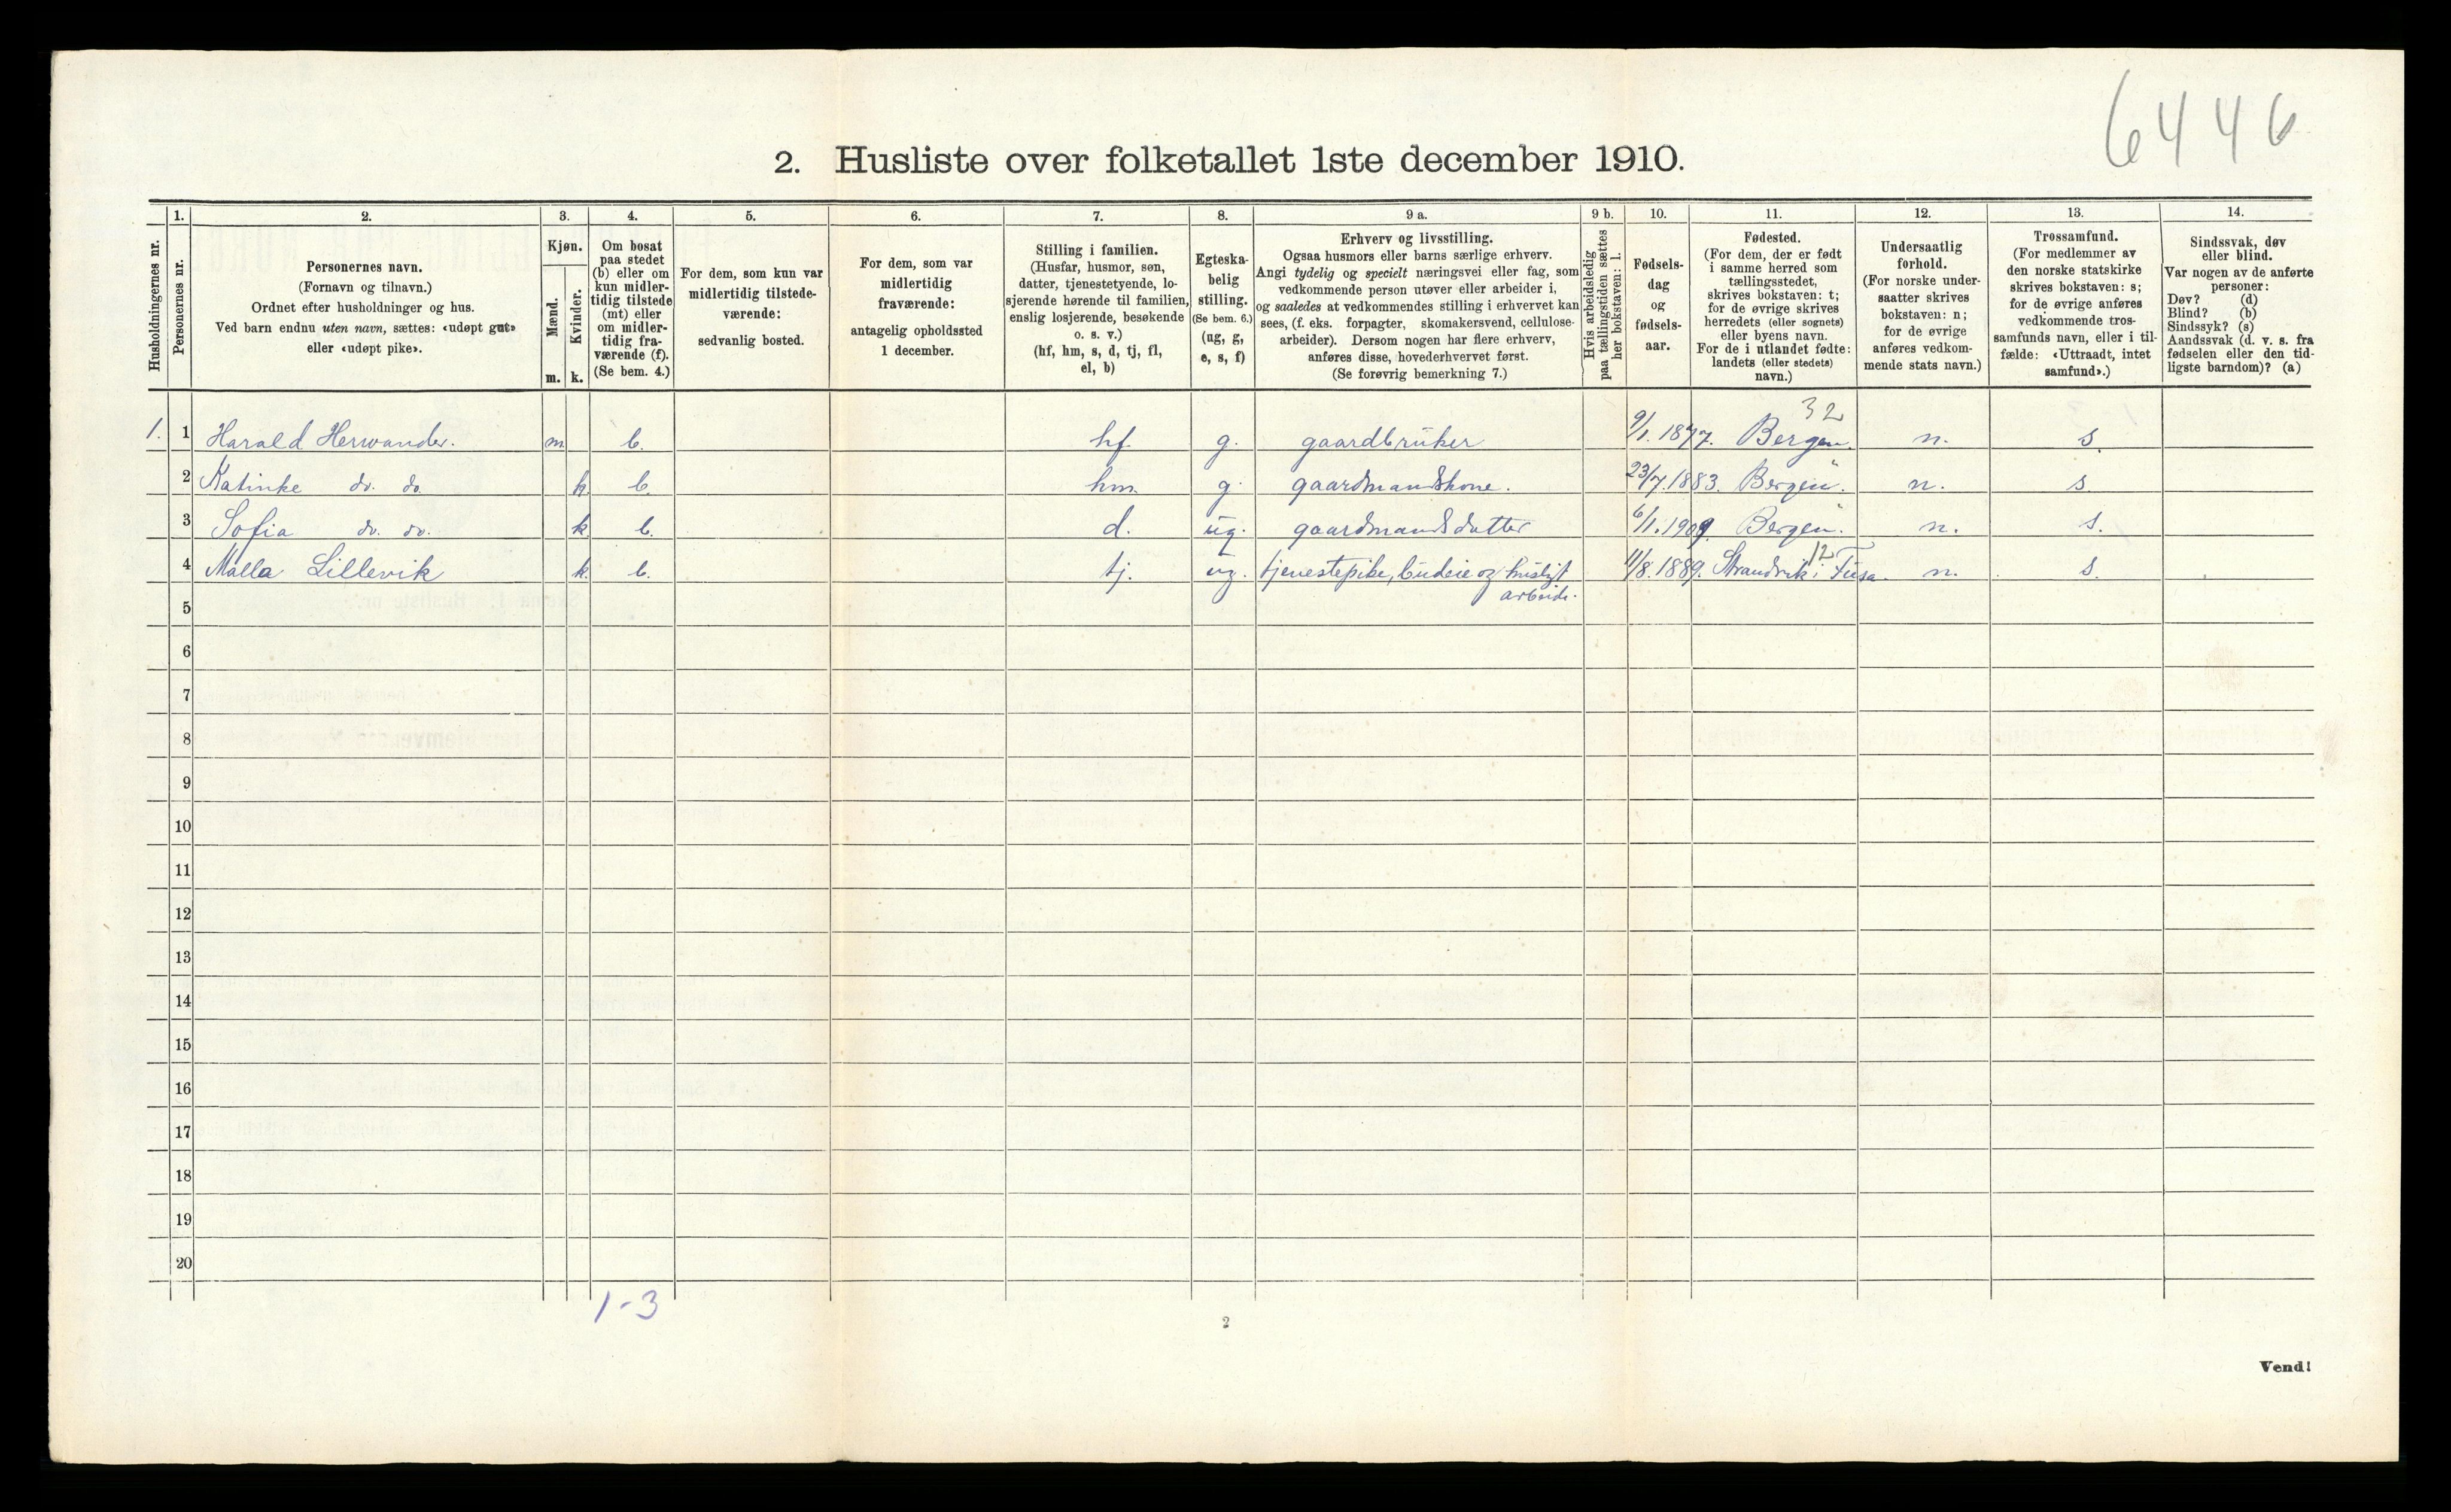 6446
2. Husliste over folketallet 1ste december 1910.
1. 2. 3. 4. 5. 6. 7. 8. 9 a. 9 b. 10. 11. 12. 13. 14.
Husholdningernes nr.
Personernes nr.
Personernes navn.
(Fornavn og tilnavn.)
Ordnet efter husholdninger og hus.
Ved barn endnu uten navn, sættes: «udøpt gut»
eller «udøpt pike».
Kjøn.
Mænd.
m.
Kvinder.
k.
Om bosat
paa stedet
(b) eller om
kun midler-
tidig tilstede
(mt) eller
om midler-
tidig fra-
værende (f).
(Se bem. 4.)
For dem, som kun var
midlertidig tilstede-
værende:
sedvanlig bosted.
For dem, som var
midlertidig
fraværende:
antagelig opholdssted
1 december.
Stilling i familien.
(Husfar, husmor, søn,
datter, tjenestetyende, lo-
sjerende hørende til familien,
enslig losjerende, besøkende
o. s. v.)
(hf, hm, s, d, tj, fl,
el, b)
Egteska-
belig
stilling.
(Se bem. 6.)
(ug, g,
e, s, f)
Erhverv og livsstilling.
Ogsaa husmors eller barns særlige erhverv.
Angi tydelig og specielt næringsvei eller fag, som
vedkommende person utøver eller arbeider i,
og saaledes at vedkommendes stilling i erhvervet kan
sees, (f. eks. forpagter, skomakersvend, cellulose-
arbeider). Dersom nogen har flere erhverv,
anføres disse, hovederhvervet først.
(Se forøvrig bemerkning 7.)
Hvis arbeidsledig
paa tællingstiden sættes
her bokstaven: l.
Fødsels-
dag
og
fødsels-
aar.
Fødested.
(For dem, der er født
i samme herred som
tællingsstedet,
skrives bokstaven: t;
for de øvrige skrives
herredets (eller sognets)
eller byens navn.
For de i utlandet fødte:
landets (eller stedets)
navn.)
Undersaatlig
forhold.
(For norske under-
saatter skrives
bokstaven: n;
for de øvrige
anføres vedkom-
mende stats navn.)
Trossamfund.
(For medlemmer av
den norske statskirke
skrives bokstaven: s;
for de øvrige anføres
vedkommende tros-
samfunds navn, eller i til-
fælde: «Uttraadt, intet
samfund».)
Sindssvak, døv
eller blind.
Var nogen av de anførte
personer:
Døv? (d)
Blind? (b)
Sindssyk? (s)
Aandssvak (d. v. s. fra
fødselen eller den tid-
ligste barndom)? (a)
32
1. 1 Harald Herwander. m b. hf g. gaardbruker 9/1.1877. Bergen. n. s
2 Katinke do. do. k. b. hm. g. gaardmandskone. 23/7.1883. Bergen. " n. s.
3 Sofia do. do. k. b. d. ug. gaardmandsdatter 6/1.1909 Bergen. " n. s.
12
4 Malla Lillevik k. b. tj. ug. tjenestepike, budeie og husligt 11/8.1889. Strandvik i Fusa. n. s.
arbeide.
5
6
7
8
9
10
11
12
13
14
15
16
17
18
19
20
1-3
2
Vend!